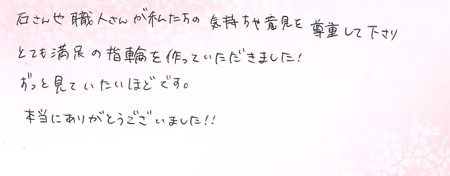 石さんや職人さんが私たちの気持ちや意見を尊重して下さり
とても満足の指輪を作っていただきました!
ずっと見ていたいほどです。
本当にありがとうございました!!